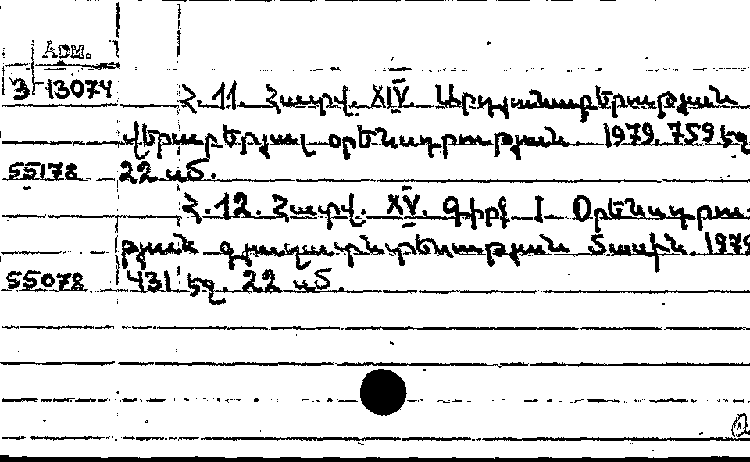 Арм.
3-13074
Հ. 11. Հատվ. XIV. Արդյունաբերության
վերաբերյալ օրենսդրություն. 1979. 759 եզ
55178 22 սմ.
Հ. 12. Հատվ. XV. Գիրք I Օրենսդրու-
թյուն գյուղատնտեսության մասին. 1979
55078 431 եզ. 22 սմ.